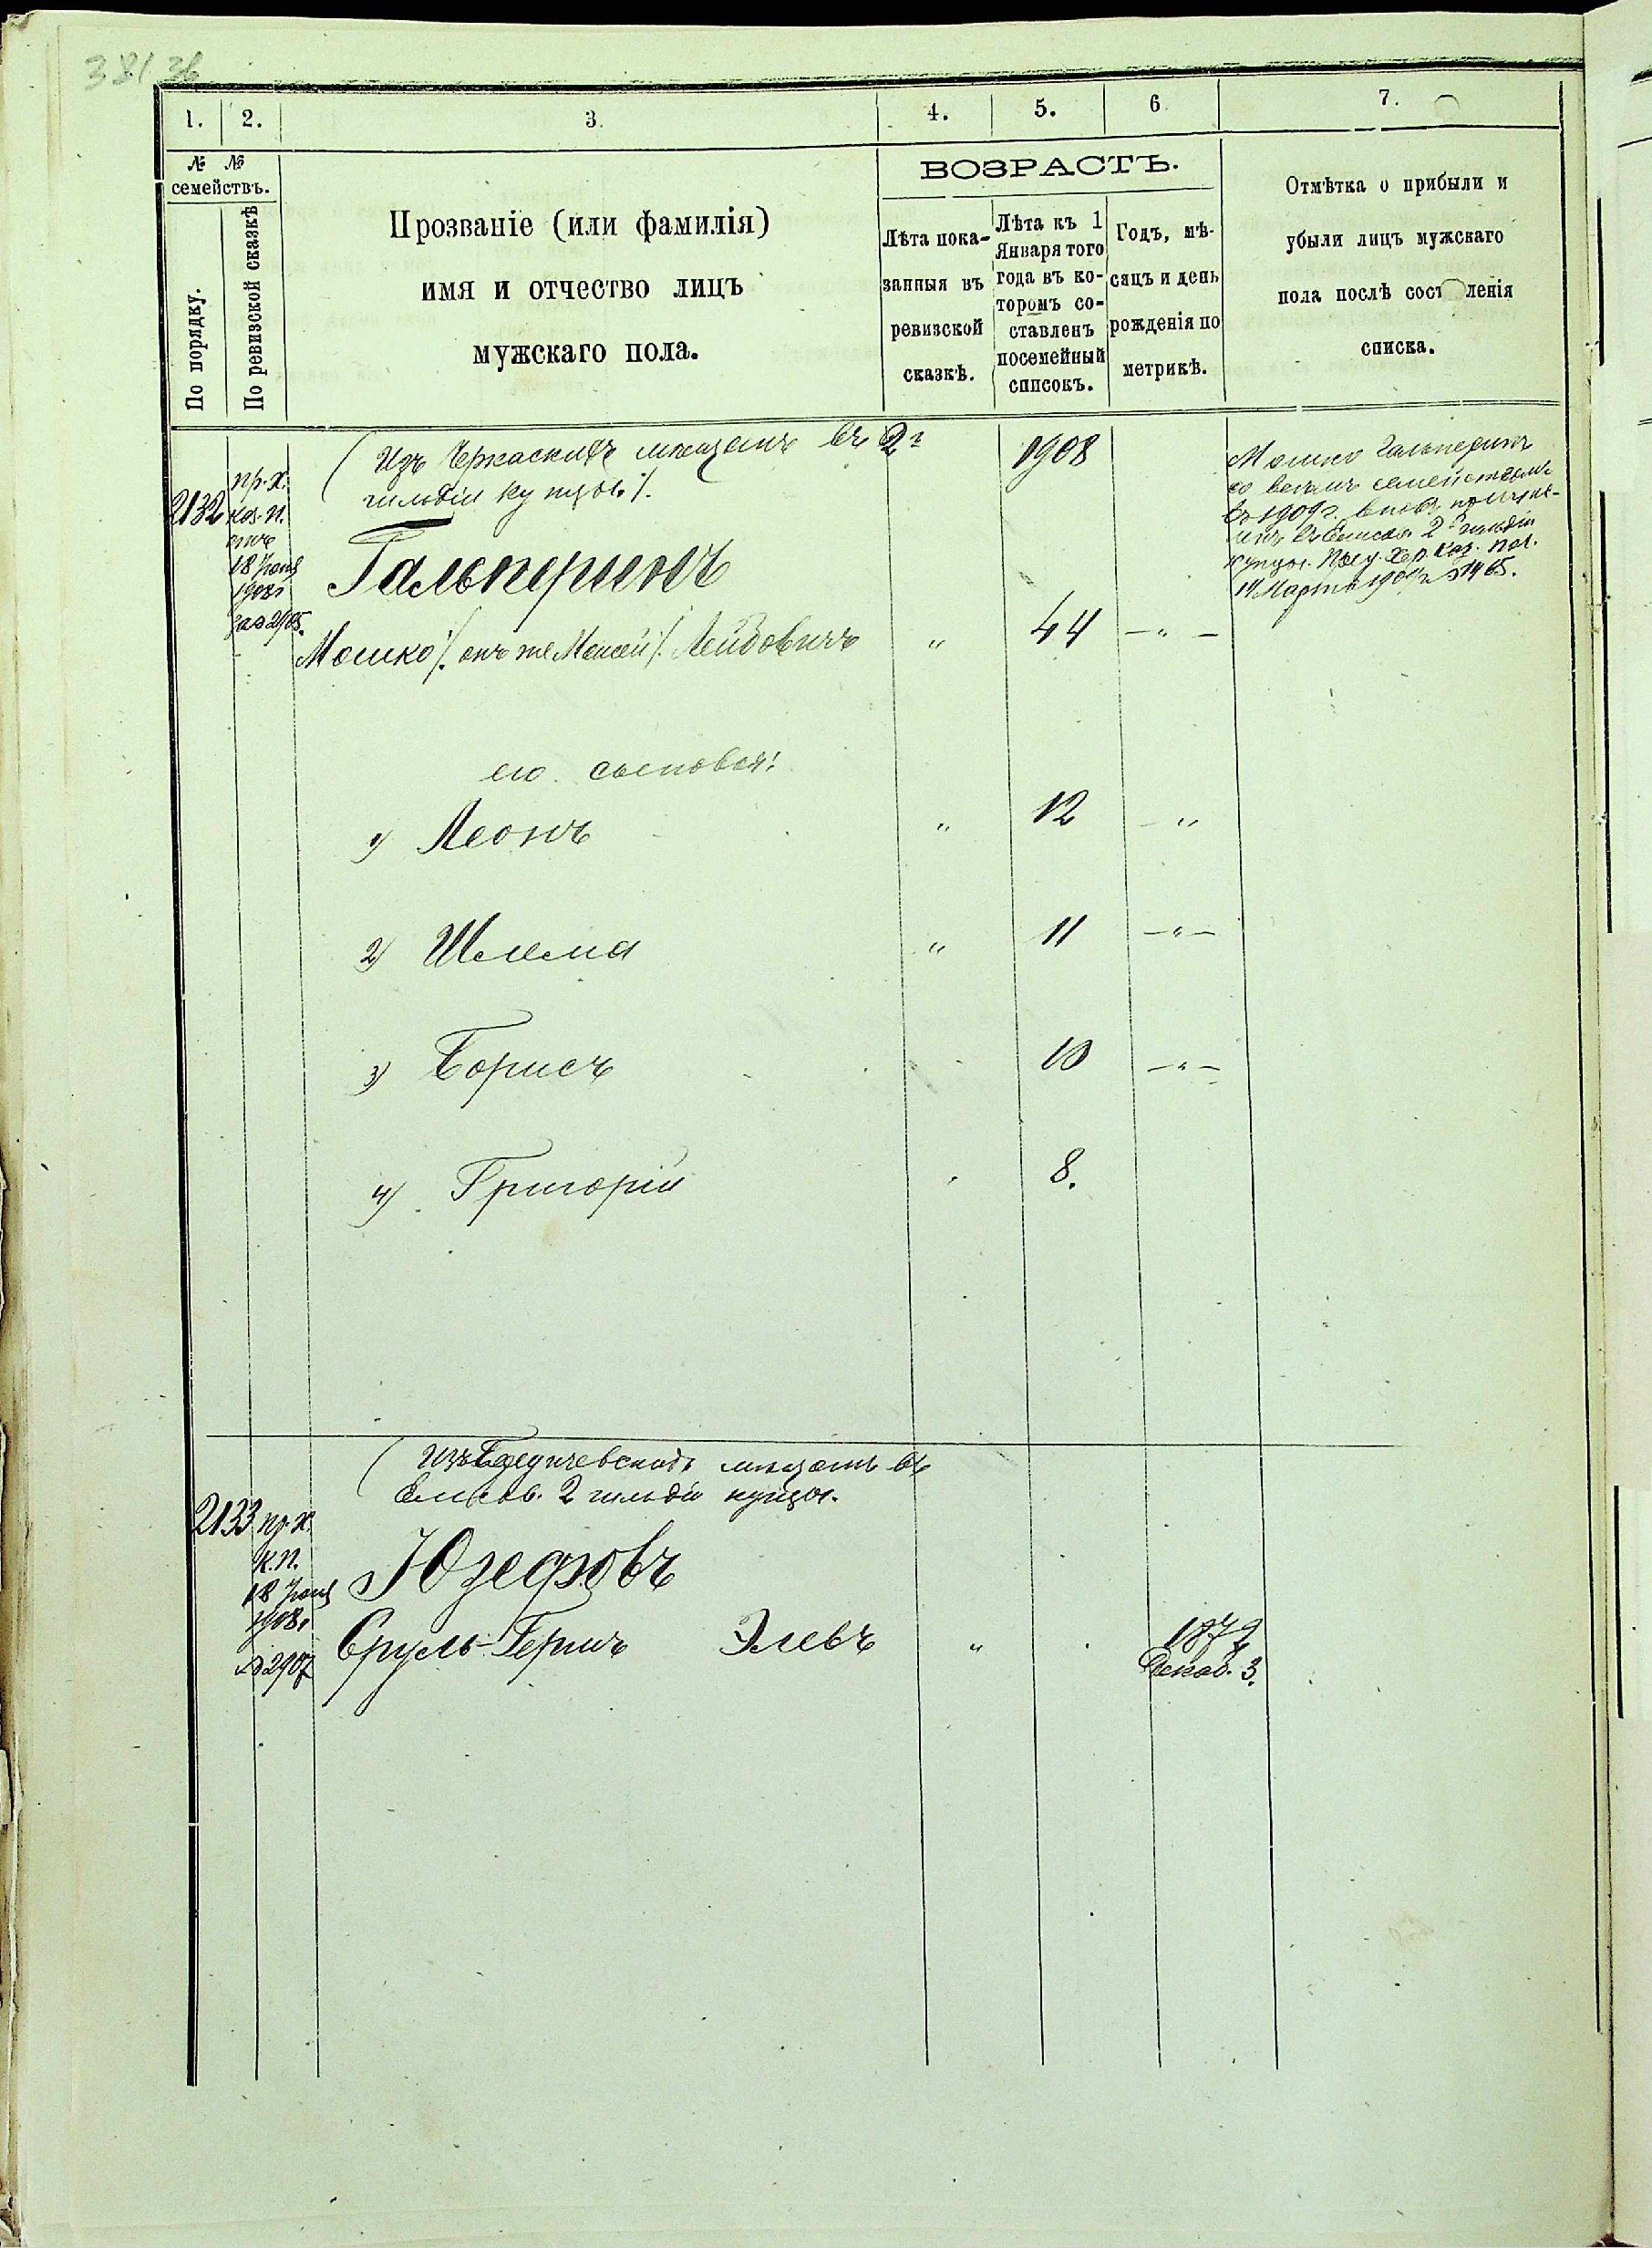 38/36
1. 2. 3. 4. 5. 6 7.
№ №
семействъ.
По порядку.
По ревизской сказкѣ
Прозваніе (или фамилія)
имя и отчество лицъ
мужскаго пола.
ВОЗРАСТЪ.
Лѣта пока-
занныя въ
ревизской
сказкѣ.
Лѣта къ 1
Января того
года въ ко-
торомъ со-
ставленъ
посемейный
списокъ.
Годъ, мѣ-
сяцъ и день
рожденія по
метрикѣ.
Отмѣтка о прибыли и
убыли лицъ мужскаго
пола послѣ сост ленія
списка.
2132
пр. Х.
каз. П.
отъ
18 Іюня
1908 г
за № 2905.
(Изъ Черкаскихъ мѣщанъ въ 2й
гильдіи купцы ./.
1908
Гальперинъ
Мошко /. онъ же Моисей /. Лейбовичъ " 44 — " —
его сыновья:
1) Леонъ " 12 — "
2) Шлема " 11 — " —
3) Борисъ 10 — " —
4) Григорій " 8.
Мошко Гальперинъ
со всѣмъ семействомъ
въ 1909 г. вновь причис-
ленъ въ Елисав. 2й гильдіи
купцы. Пред. Хер. Каз. Пал.
14 Марта 1909 г № 1465.
2133
пр. Х.
К. П.
18 Іюня
1908 г
№ 2907
(Изъ Бердичевскихъ мѣщанъ въ
Елисав. 2 гильдіи купцы.
Юзефовъ
Сруль-Гершъ Элевъ "
1872
Декаб. 3.